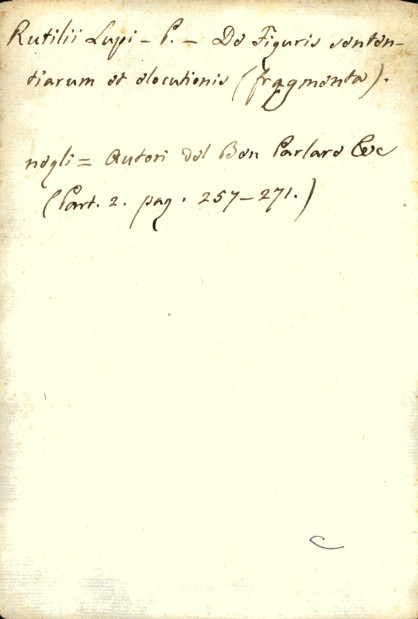 Rutilii Lupi - P. - De Figuris senten-
tiarum et elocutionis (fragmenta).
negli = Autori del Ben Parlare &c
(Part. 2. pag. 257-271.)
C